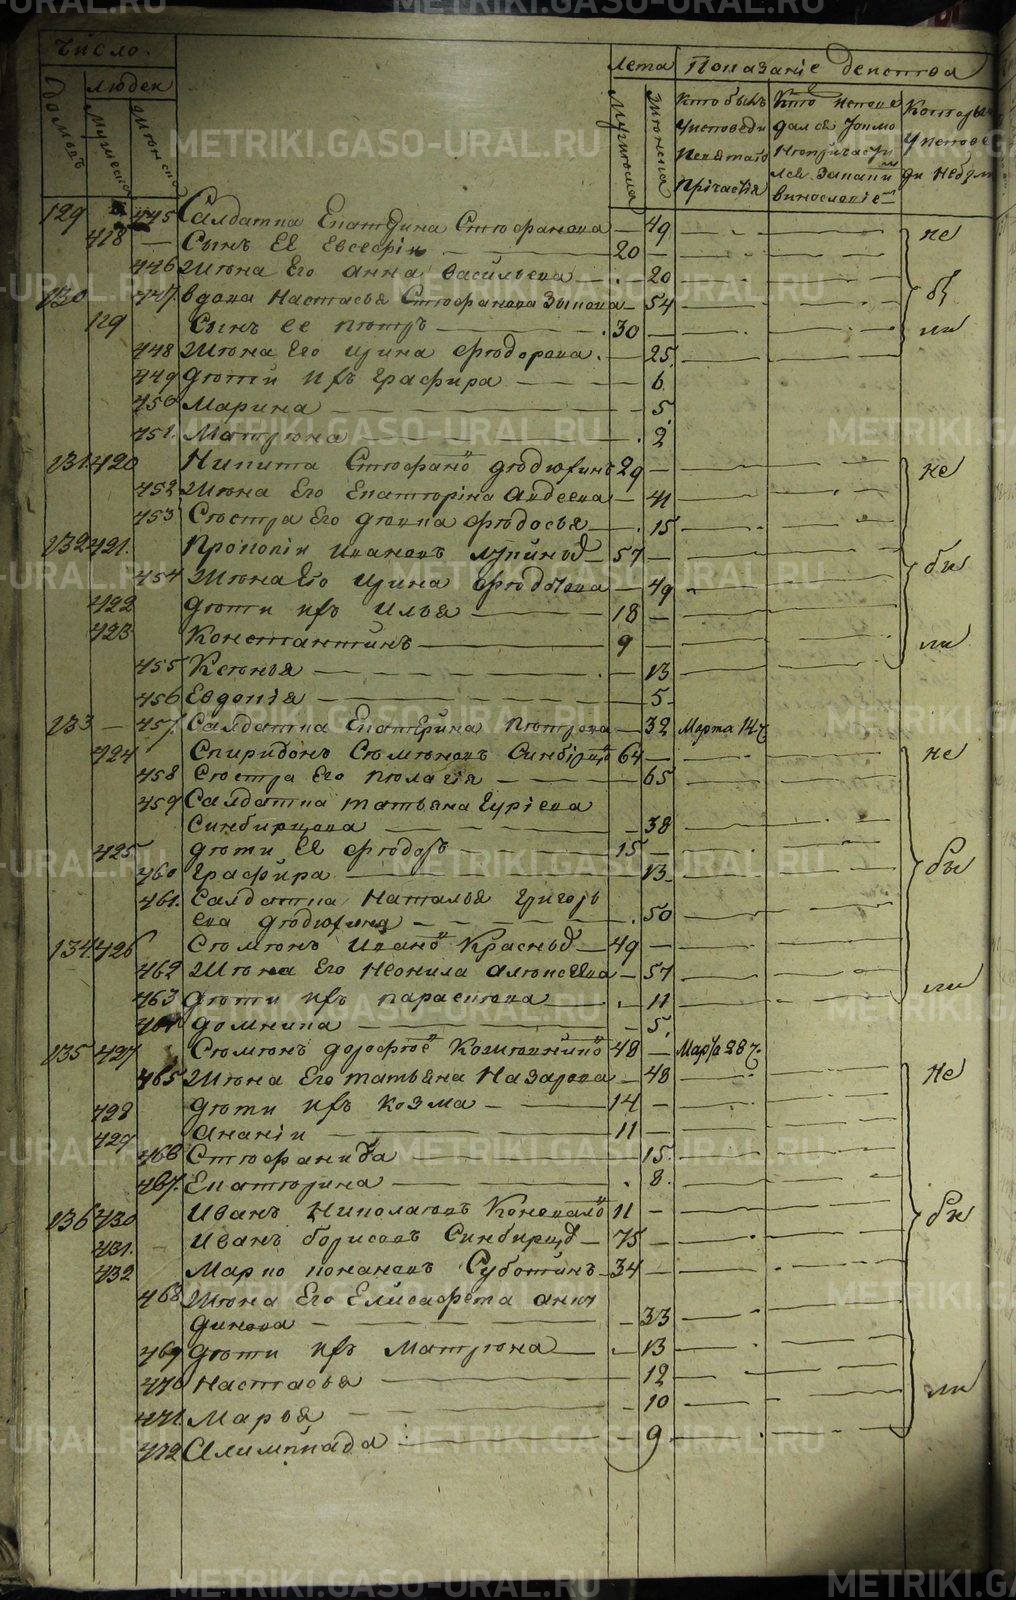 Число.
Лета Показанїе действа
домовъ
людей
мужеска
женска
мужеска
женска
Кто былъ
Уисповеди
Исвятаго
Прїчастїя
Кто испове
дался Токмо
Непричасти
лся
Которы
Уиспове
ди Небыли
129 445 Салдатка Екатерина Стефанова — 49
418 — Сынъ Ея Евсевїй 20 —
446 Жена Его Анна Васильева — 20
130 447 вдова Настасья Стефанова Зыкова — 54
419 Сынъ ее петръ — 30
448 Жена Его Ирина федорова — 25
449 дети ихъ Графира — 6
450 Марина — 5
451 Матрена — 2
131 420 Никита Стефано дедюхинъ 29 —
452 Жена Его Екатерина Авдеева — 41
453 Сестра Его девка федосья — 15
132 421 Прокопїи Ивановъ 57 —
454 Жена Его Ирина — 49
422 дети ихъ Илья — 18 —
423 Константинъ — 9 —
455 Ксенья — 13
456 Евдокїя — 5
133 — 457 Салдатка Екатерина Петрова — 32 Марта 14 ч
424 Спиридонъ Семеновъ 64 —
458 Сестра Его Пелагїя — 65
459 Салдатка Татьяна Гурїева
Синбирцова — 38
425 дети Ея федоръ — 15 —
460 Графира — 13
461 Салдатка Наталья Григорь
ева дедюхина — 50
134 426 Семенъ Ивано Красных — 49 —
462 Жена Его Неонила Алексеева — 51
463 дети ихъ параскева — 11
464 домника — 5
135 427 Семенъ дорофее Кожевнико 48 — Марта 28 ч
465 Жена Его Татьяна Назарова — 48
428 дети ихъ козма — 14 —
429 Ананїи — 11 —
466 Стефанида — 15
467 Екатерина — 8
136 430 Иванъ Николаевъ Коновало 11 —
431 Иванъ борисовъ Синбирцо — 75 —
432 Марко Субботинъ — 34 —
468 Жена Его Елисафета
— 33
469 дети ихъ Матрена — 13
470 Настасья — 12
471 Марья — 10
472 Алимпїада — 9
не
бы
ли
не
бы
ли
не
бы
ли
не
бы
ли
METRIKI.GASO-URAL.RU